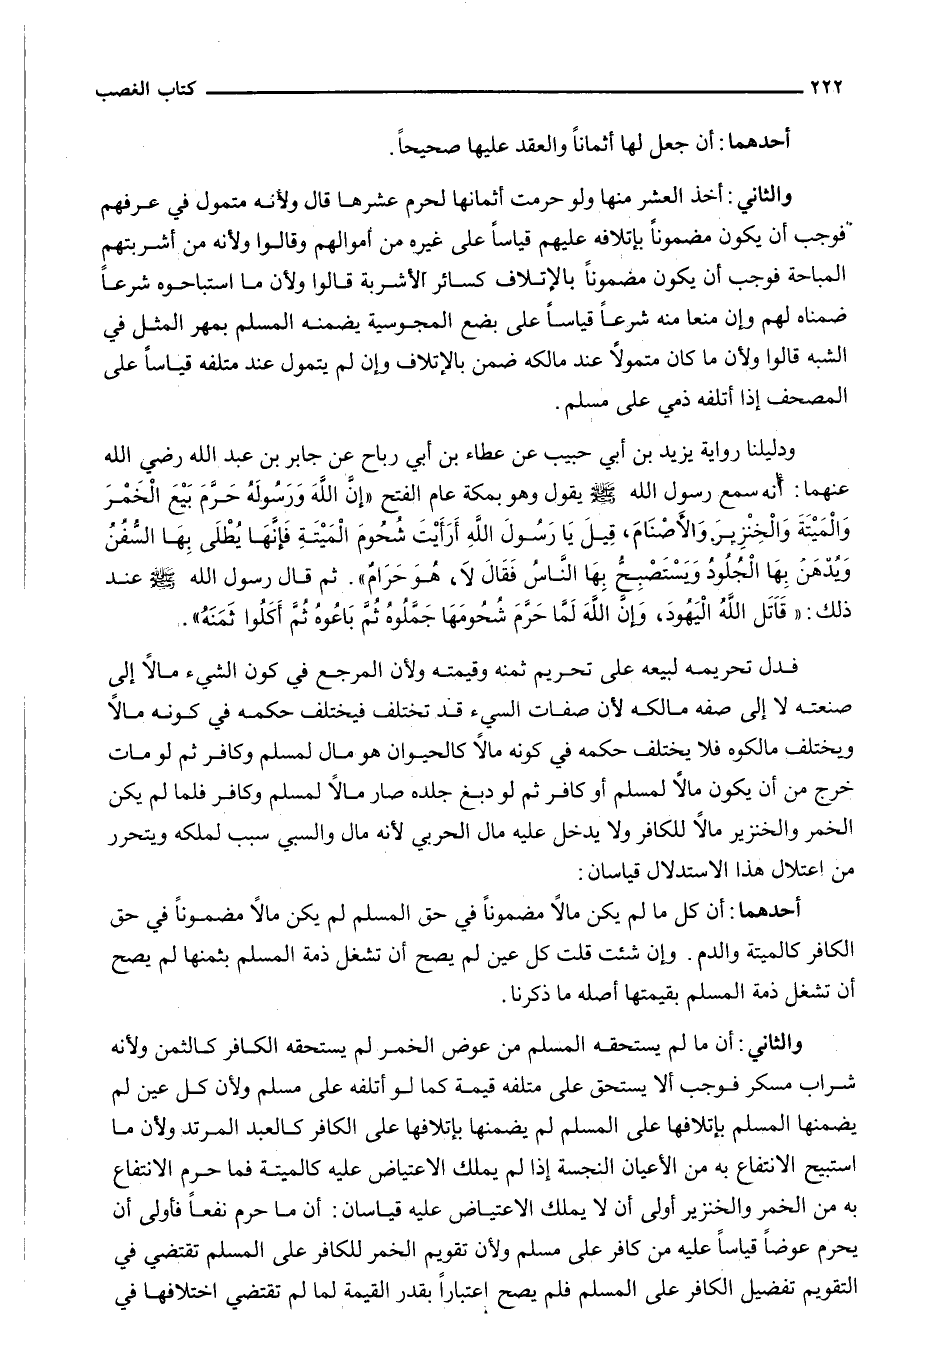 ٢٢٢ كتاب الغصب
أحدهما: أن جعل لها أثماناً والعقد عليها صحيحاً.
والثاني: أخذ العشر منها ولو حرمت أثمانها لحرم عشرها قال ولأنه متمول في عرفهم
فوجب أن يكون مضموناً بإتلافه عليهم قياساً على غيره من أموالهم وقالوا ولأنه من أشربتهم
المباحة فوجب أن يكون مضموناً بالإتلاف كسائر الأشربة قالوا ولأن ما استباحوه شرعاً
ضمناه لهم وإن منعا منه شرعاً قياساً على بضع المجوسية يضمنه المسلم بمهر المثل في
الشبه قالوا ولأن ما كان متمولاً عند مالكه ضمن بالإتلاف وإن لم يتمول عند متلفه قياساً على
المصحف إذا أتلفه ذمي على مسلم.
ودليلنا رواية يزيد بن أبي حبيب عن عطاء بن أبي رباح عن جابر بن عبد الله رضي الله
عنهما: أنه سمع رسول الله ﷺ يقول وهو بمكة عام الفتح «إِنَّ اللَّهَ وَرَسُولَهُ حَرَّمَ بَيْعَ الْخَمْرَ
وَالْمَيْتَةَ وَالْخِنْزِيرَ وَالأَصْنَامَ، قِيلَ يَا رَسُولَ اللَّهِ أَرَأَيْتَ شُحُومَ الْمَيْتَةِ فَإِنَّهَا يُطْلَى بِهَا السُّفُنُ
وَيُدْهَنُ بِهَا الْجُلُودُ وَيَسْتَصْبِحُ بِهَا النَّاسُ فَقَالَ لَا، هُوَ حَرَامٌ». ثم قال رسول الله ﷺ عند
ذلك: « قَاتَلَ اللَّهُ الْيَهُودَ، وَإِنَّ اللَّهَ لَمَّا حَرَّمَ شُحُومَهَا جَمَلُوهُ ثُمَّ بَاعُوهُ ثُمَّ أَكَلُوا ثَمَنَهُ».
فدل تحريمه لبيعه على تحريم ثمنه وقيمته ولأن المرجع في كون الشيء مالاً إلى
صنعته لا إلى صفه مالكه لأن صفات السيء قد تختلف فيختلف حكمه في كونه مالاً
ويختلف مالكوه فلا يختلف حكمه في كونه مالاً كالحيوان هو مال لمسلم وكافر ثم لو مات
خرج من أن يكون مالاً لمسلم أو كافر ثم لو دبغ جلده صار مالاً لمسلم وكافر فلما لم يكن
الخمر والخنزير مالاً للكافر ولا يدخل عليه مال الحربي لأنه مال والسبي سبب لملكه ويتحرر
من اعتلال هذا الاستدلال قياسان:
أحدهما: أن كل ما لم يكن مالاً مضموناً في حق المسلم لم يكن مالاً مضموناً في حق
الكافر كالميتة والدم. وإن شئت قلت كل عين لم يصح أن تشغل ذمة المسلم بثمنها لم يصح
أن تشغل ذمة المسلم بقيمتها أصله ما ذكرنا.
والثاني: أن ما لم يستحقه المسلم من عوض الخمر لم يستحقه الكافر كالثمن ولأنه
شراب مسكر فوجب ألا يستحق على متلفه قيمة كما لو أتلفه على مسلم ولأن كل عين لم
يضمنها المسلم بإتلافها على المسلم لم يضمنها بإتلافها على الكافر كالعبد المرتد ولأن ما
استبيح الانتفاع به من الأعيان النجسة إذا لم يملك الاعتياض عليه كالميتة فما حرم الانتفاع
به من الخمر والخنزير أولى أن لا يملك الاعتياض عليه قياسان: أن ما حرم نفعاً فأولى أن
يحرم عوضاً قياساً عليه من كافر على مسلم ولأن تقويم الخمر للكافر على المسلم تقتضي في
التقويم تفضيل الكافر على المسلم فلم يصح اعتباراً بقدر القيمة لما لم تقتضي اختلافها في